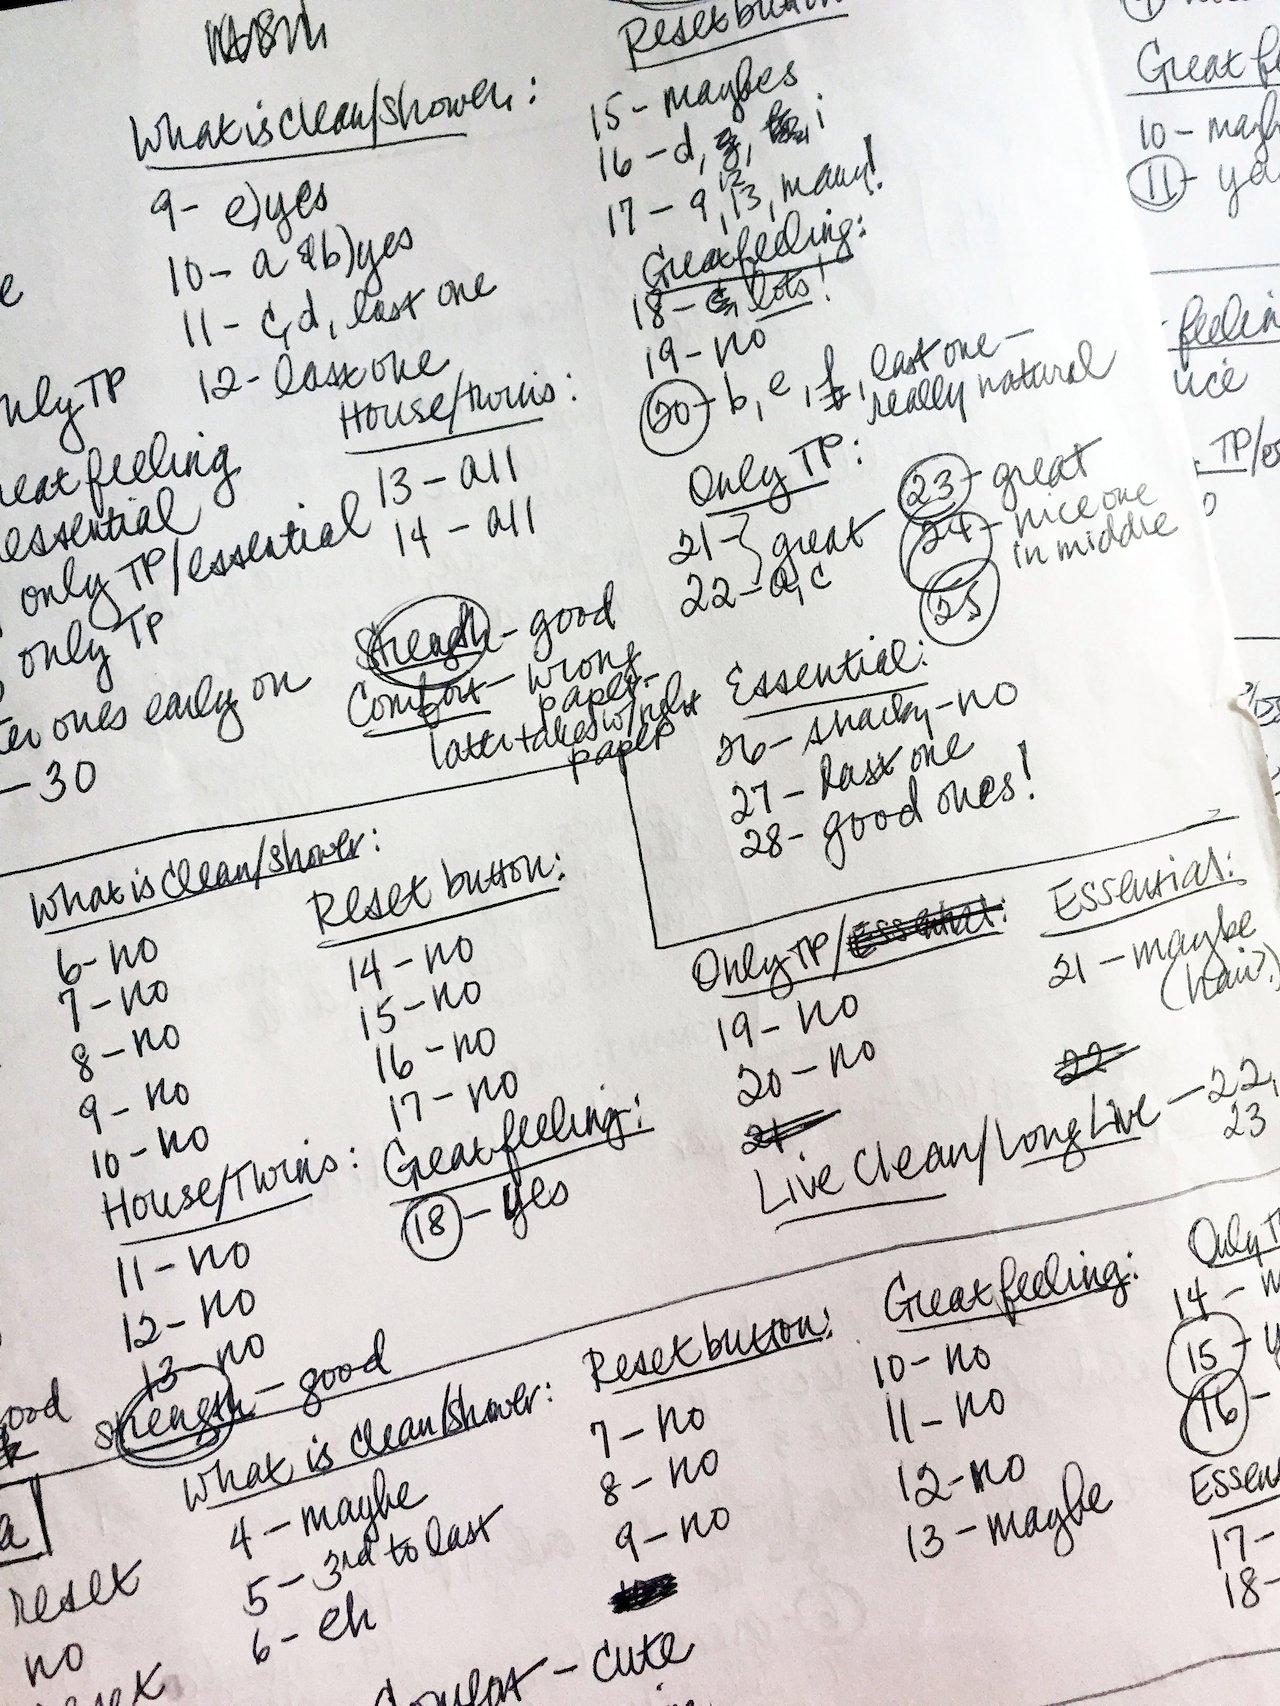 What is clean/shower:
9- e) yes
10- a & b) yes
11- c, d, last one
12- last one
House/Twins:
13- all
14- all
Strength- good
Comfort- wrong
paper-
later takes w/right
paper
Reset button
15- maybes
16- d, i
17- 9, 12, 13, many!
Great feeling:
18- lots!
19- no
20- b, e, f, last one-
really natural
Only TP:
21- great
22- a, c
23- great
24- nice one
in middle
25
Essential:
26- shacky-no
27- last one
28- good ones!
only TP
great feeling
essential
only TP/essential
only TP
ones early on
-30
Great fe
10- mayb
11- ye
feelin
nice
TP/es
What is clean/shower:
6- no
7- no
8- no
9- no
10- no
House/Twins:
11- no
12- no
13- no
Strength- good
Reset button:
14- no
15- no
16- no
17- no
Great feeling:
18- yes
Only TP/Essential:
19- no
20- no
21
Essential:
21- maybe
(hair?)
22
Live Clean/Long Live-22,
23
What is clean/shower:
4- maybe
5- 3rd to last
6- eh
Reset button:
7- no
8- no
9- no
Great feeling:
10- no
11- no
12- no
13- maybe
Only T
14- m
15- y
16-
Essen
17-
18-
ood
a
reset
no
reset
Comfort- cute